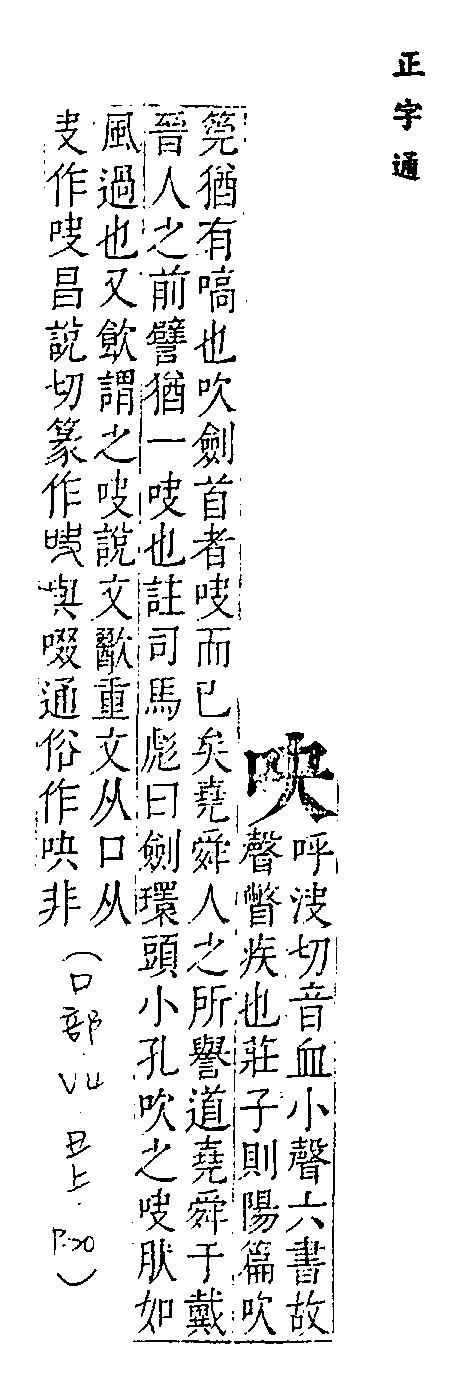 正字通
吷
呼決切音血小聲六書故
聲瞥疾也莊子則陽篇吹
筦猶有嗃也吹劍首者吷而已矣堯舜人之所譽道堯舜于戴
晉人之前譬猶一吷也註司馬彪曰劍環頭小孔吹之吷肰如
風過也又飮謂之吷說文歠重文从口从
叏作吷昌說切篆作吷與啜通俗作吷非
(口部 丑上 P.20)